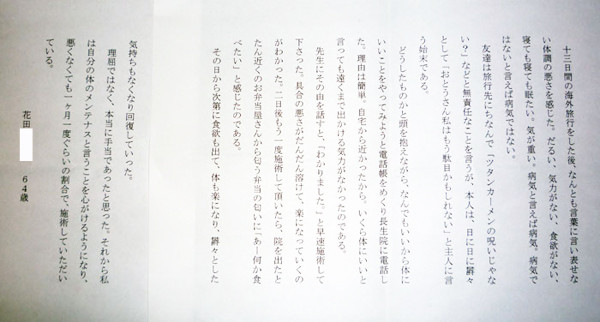 十三日間の海外旅行をした後、なんとも言葉に言い表せな
い体調の悪さを感じた。だるい、気力がない、食欲がない、
寝ても寝ても眠たい。気が重い。病気と言えば病気。病気で
はないと言えば病気ではない。
友達は旅行先にちなんで「ツタンカーメンの呪いじゃな
い？」などと無責任なことを言うが、本人は、日に日に欝々
として「おとうさん私はもう駄目かもしれない」と主人に言
う始末である。
どうしたものかと頭を抱えながら、なんでもいいから体に
いいことをやってみようと電話帳をめくり長生院に電話し
た。理由は簡単、自宅から近かったから。いくら体にいいと
言っても遠くまで出かける気力がなかったのである。
先生にその由を話すと、「わかりました。」と早速施術して
下さった。具合の悪さがだんだん溶けて、楽になっていくの
がわかった。二日後もう一度施術して頂いたら、院を出たと
たん近くのお弁当屋さんから匂う弁当の匂いに「あー何か食
べたい」と感じたのである。
その日から次第に食欲も出て、体も楽になり、欝々とした
気持ちもなくなり回復していった。
理屈ではなく、本当に手当であったと思った。それから私
は自分の体のメンテナスと言うことを心がけるようになり、
悪くなくても一ヶ月一度ぐらいの割合で、施術していただい
ている。
花田 64歳